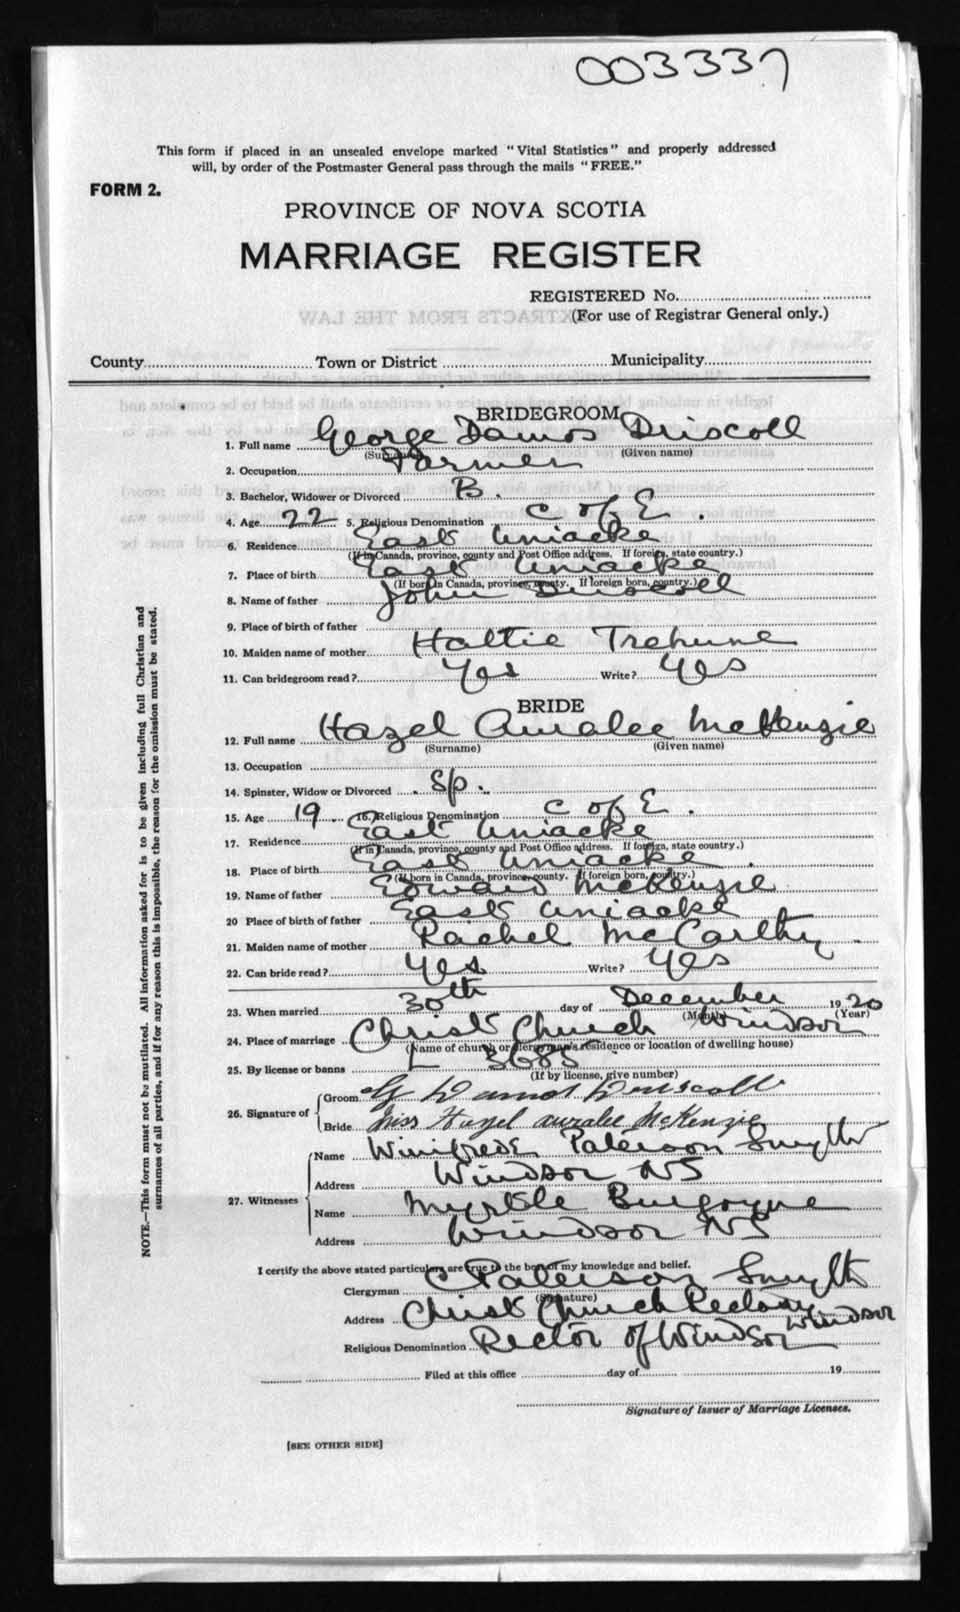 003337
This form if placed in an unsealed envelope marked "Vital Statistics" and properly addressed
will, by order of the Postmaster General pass through the mails "FREE."
FORM 2.
PROVINCE OF NOVA SCOTIA
MARRIAGE REGISTER
REGISTERED No.
(For use of Registrar General only.)
EXTRACTS FROM THE LAW
County Town or District Municipality
BRIDEGROOM
1. Full name George Damos Driscoll
(Surname) (Given name)
2. Occupation Farmer
3. Bachelor, Widower or Divorced B.
4. Age 22 5. Religious Denomination C of E.
6. Residence East Uniacke
(If in Canada, province, county and Post Office address. If foreign, state country.)
7. Place of birth East Uniacke
(If born in Canada, province, county. If foreign born, country.)
8. Name of father John Driscoll
9. Place of birth of father
10. Maiden name of mother Hattie Trehune
11. Can bridegroom read? Yes Write? Yes
BRIDE
12. Full name Hazel Auralee McKenzie
(Surname) (Given name)
13. Occupation
14. Spinster, Widow or Divorced Sp.
15. Age 19. 16. Religious Denomination C of E.
17. Residence East Uniacke
(If in Canada, province, county and Post Office address. If foreign, state country.)
18. Place of birth East Uniacke.
(If born in Canada, province, county. If foreign born, country.)
19. Name of father Edward McKenzie
20 Place of birth of father East Uniacke
21. Maiden name of mother Rachel McCarthy.
22. Can bride read? Yes Write? Yes
23. When married 30th day of December 1920
(Month) (Year)
24. Place of marriage Christ Church Windsor
(Name of church or clergyman's residence or location of dwelling house)
25. By license or banns L 3685
(If by license, give number)
26. Signature of Groom G Damos Driscoll
Bride Miss Hazel auralee McKenzie
27. Witnesses Name Winifrede Paterson Smyth
Address Windsor NS
Name Myrtle Burgoyne
Address Windsor NS
I certify the above stated particulars are true to the best of my knowledge and belief.
Clergyman C Paterson Smyth
(Signature)
Address Christ Church Rectory Windsor
Religious Denomination Rector of Windsor
Filed at this office day of 19
Signature of Issuer of Marriage Licenses.
[SEE OTHER SIDE]
NOTE.—This form must not be mutilated. All information asked for is to be given including full Christian and
surnames of all parties, and if for any reason this is impossible, the reason for the omission must be stated.